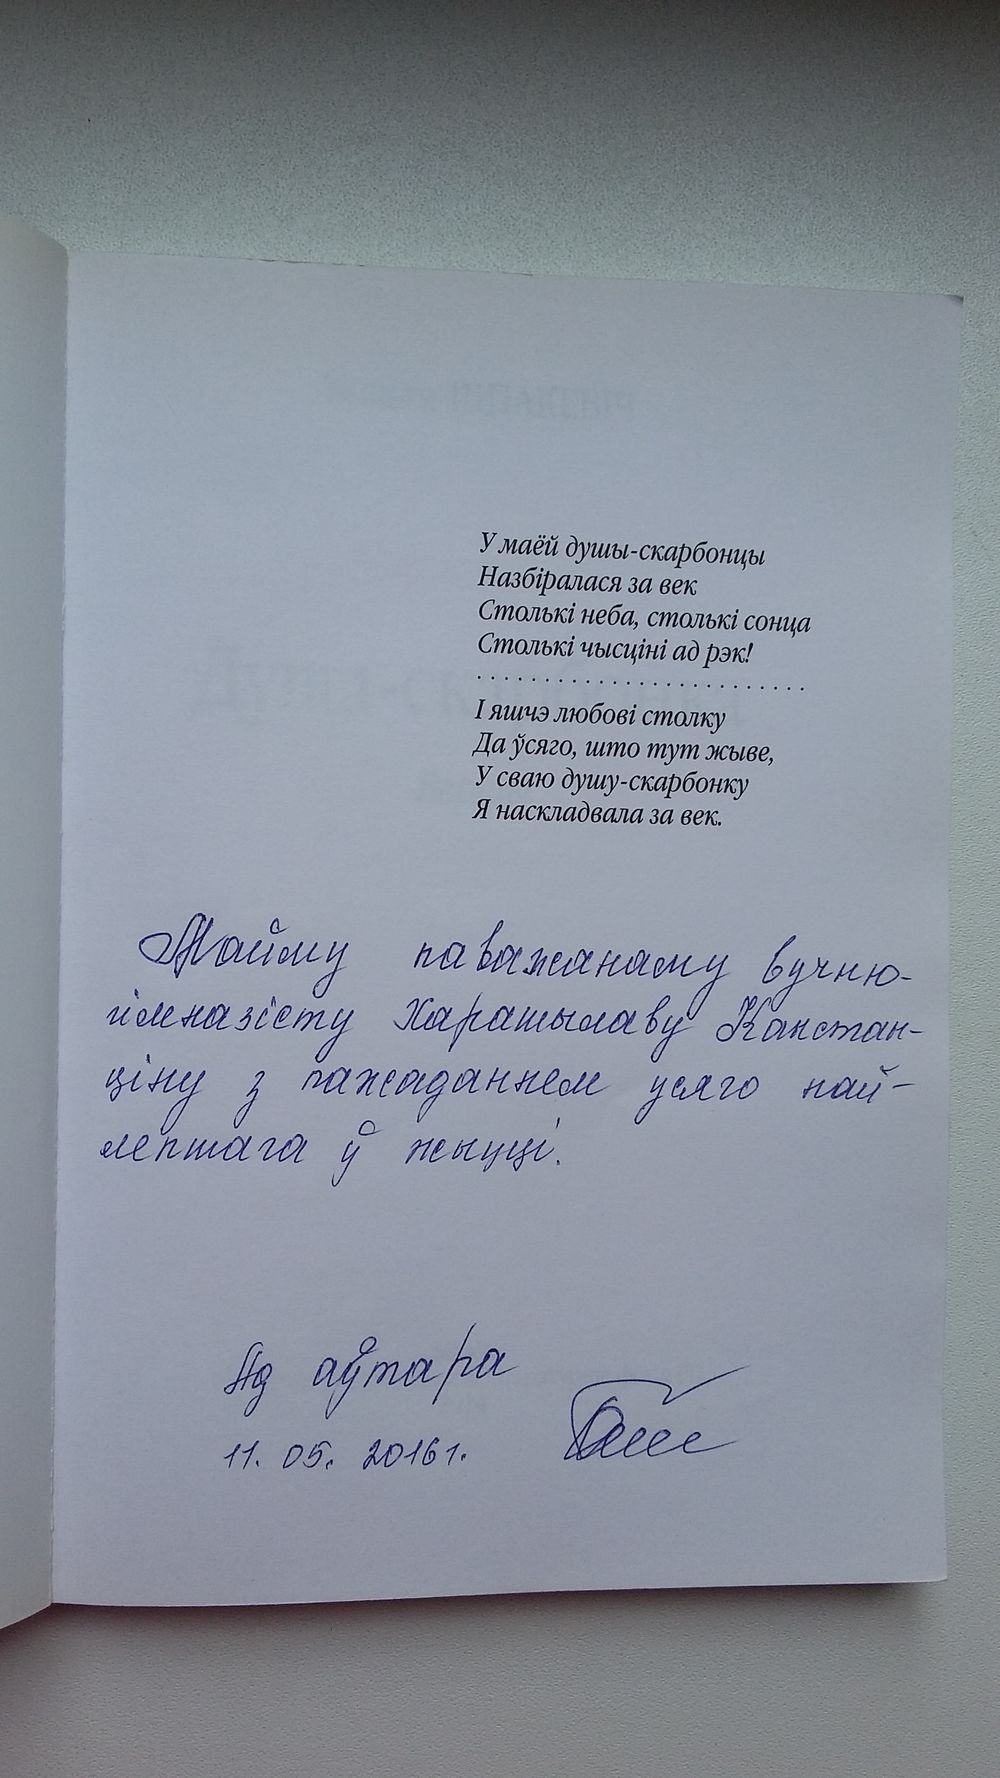 У маёй душы-скарбонцы
Назбіралася за век
Столькі неба, столькі сонца
Столькі чысціні ад рэк!
. . . . . . . . . . . . . . . . . . . . . . . . . .
І яшчэ любові столку
Да ўсяго, што тут жыве,
У сваю душу-скарбонку
Я наскладвала за век.
Майму паважанаму вучню-
гімназісту Харашылаву Канстан-
ціну з пажаданнем усяго най-
лепшага ў жыцці.
Ад аўтара
11. 05. 2016 г.